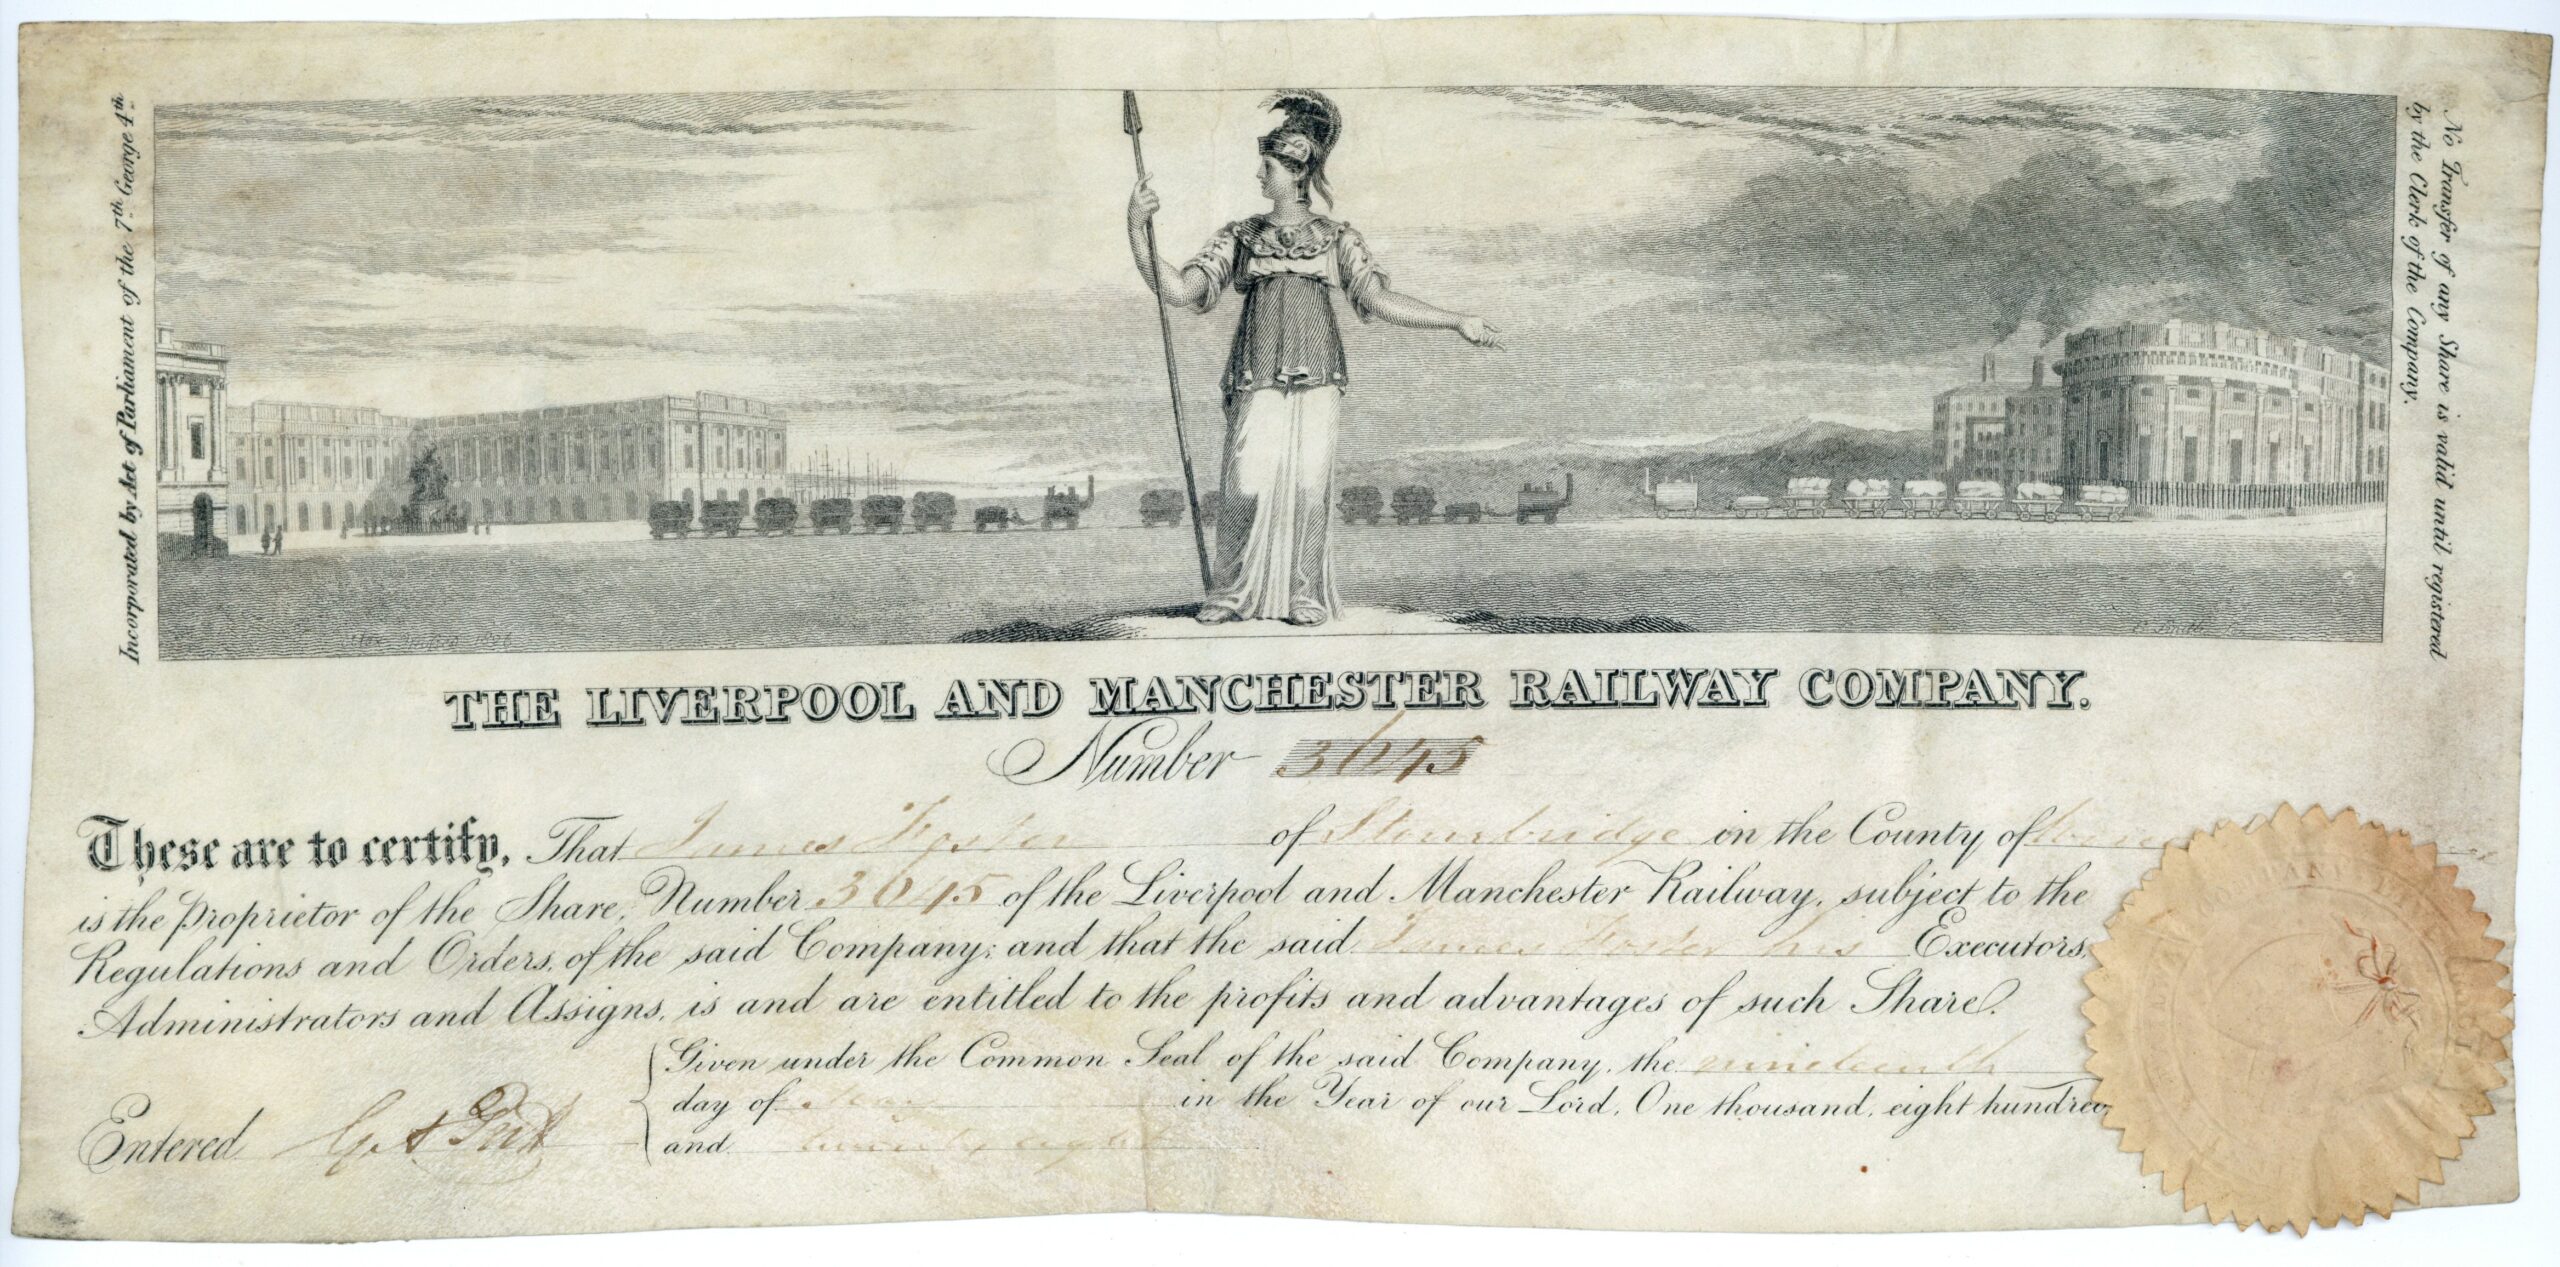 Incorporated by Act of Parliament of the 7th George 4th
No Transfer of any Share is valid until registered
by the Clerk of the Company.
THE LIVERPOOL AND MANCHESTER RAILWAY COMPANY.
Number 3645
These are to certify, That James Foster of Stourbridge in the County of
is the Proprietor of the Share, Number 3645 of the Liverpool and Manchester Railway, subject to the
Regulations and Orders, of the said Company; and that the said James Foster his Executors,
Administrators and Assigns, is and are entitled to the profits and advantages of such Share.
Given under the Common Seal of the said Company, the nineteenth
day of in the Year of our Lord, One thousand, eight hundred
and twenty eight
Entered